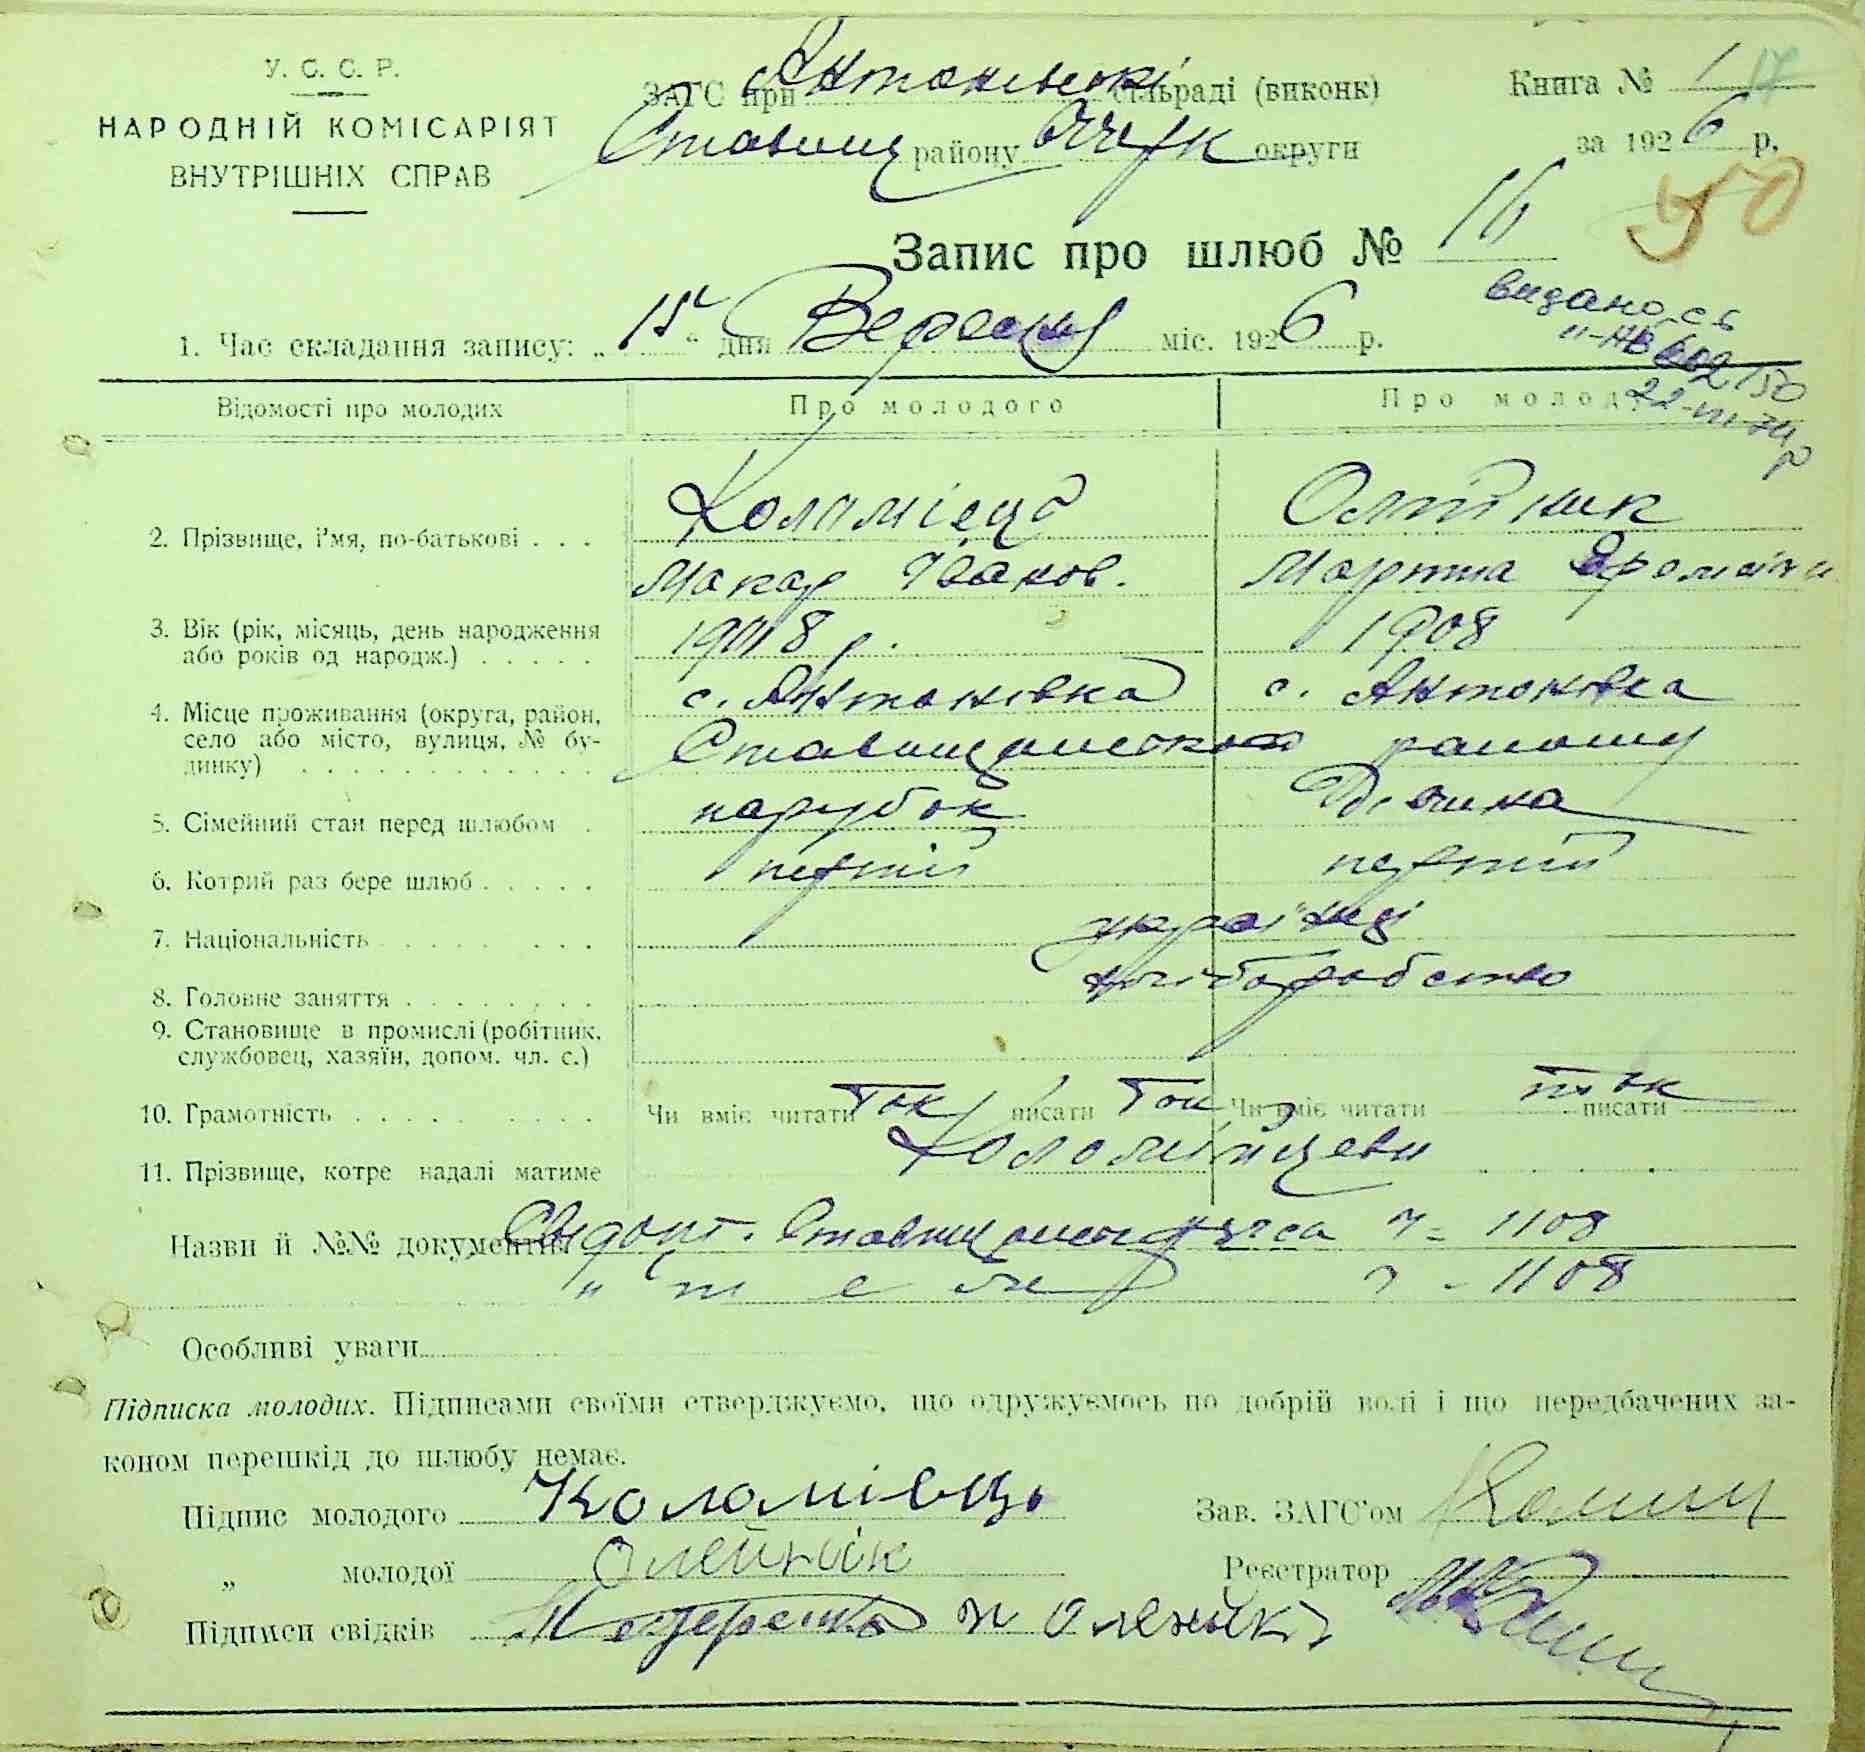 У. С. С. Р.
НАРОДНІЙ КОМІСАРІЯТ
ВНУТРІШНІХ СПРАВ
ЗАГС при Антонівскі сільраді (виконк)
Ставищ району БЦерк округи
Книга № 1 17
за 1926 р.
50
Запис про шлюб № 16
видано св
II-АБ 602150
22-III-74р
1. Час складання запису: „15“ дня Вересня міс. 1926 р.
Відомості про молодих
Про молодого
Про молоду
2. Прізвище, і'мя, по-батькові . . .
Коломієць
Макар Иванов.
Олійник
Марта Яремівна
3. Вік (рік, місяць, день народження
або років од народж.) . . . . .
1908 р.
1908
4. Місце проживання (округа, район,
село або місто, вулиця, № бу-
динку) . . . . . . . . . . . .
с. Антонівка
с. Антонівка
Ставищанського району
5. Сімейний стан перед шлюбом .
парубок
Дівчина
6. Котрий раз бере шлюб . . . . .
первий
первий
7. Національність . . . . . . . .
українці
8. Головне заняття . . . . . . . .
хліборобство
9. Становище в промислі (робітник,
службовец, хазяїн, допом. чл. с.)
10. Грамотність . . . . . . . . . .
Чи вміє читати так писати так Чи вміє читати писати так
11. Прізвище, котре надалі матиме
Коломійцеви
Назви й №№ документів Свідоцт. Ставищанськ 1108
" т е ж 1108
Особливі уваги
Підписка молодих. Підписами своїми стверджуємо, що одружуємось по добрій волі і що передбачених за-
коном перешкід до шлюбу немає.
Підпис молодого Коломієць
Зав. ЗАГС'ом
„ молодої Олейнік
Реєстратор
Підписи свідків